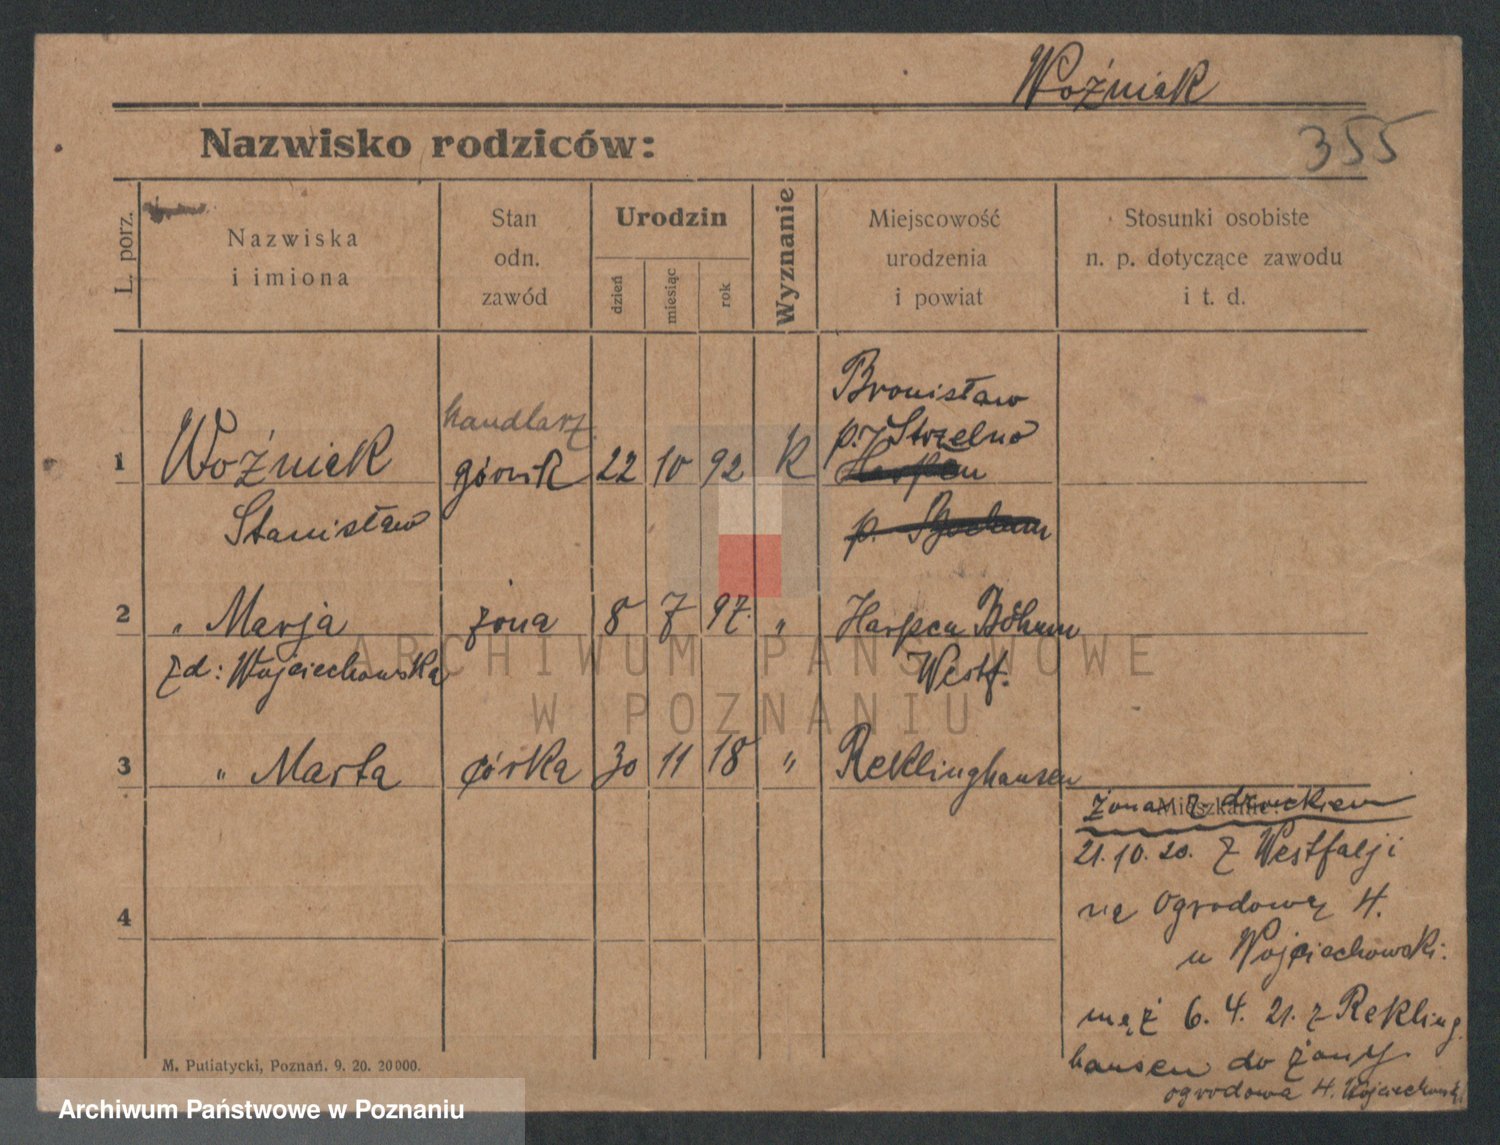 Woźniak
Nazwisko rodziców:
355
L. porz.
Nazwiska
i imiona
Stan
odn.
zawód
Urodzin
dzień
miesiąc
rok
Wyznanie
Miejscowość
urodzenia
i powiat
Stosunki osobiste
n. p. dotyczące zawodu
i t. d.
1
Woźniak
Stanisław
handlarz
górnik
22 10 92 K
Bronisław
p. Strzelno
Harpen
p. Bochum
2
" Marja
zd: Wojciechowska
żona
8 7 97. "
Harpen Böhum
Westf.
3
" Marta
córka
30 11 18 "
Reklinghausen
4
Mieszkanie:
żona z dzieckiem
21.10.20. z Westfalji
na Ogrodową 4.
u Wojciechowski.
mąż 6. 4. 21. z Rekling
hausen do żony.
ogrodowa 4. Wojciechowski
M. Putiatycki, Poznań. 9. 20. 20 000.
ARCHIWUM PAŃSTWOWE
W POZNANIU
Archiwum Państwowe w Poznaniu